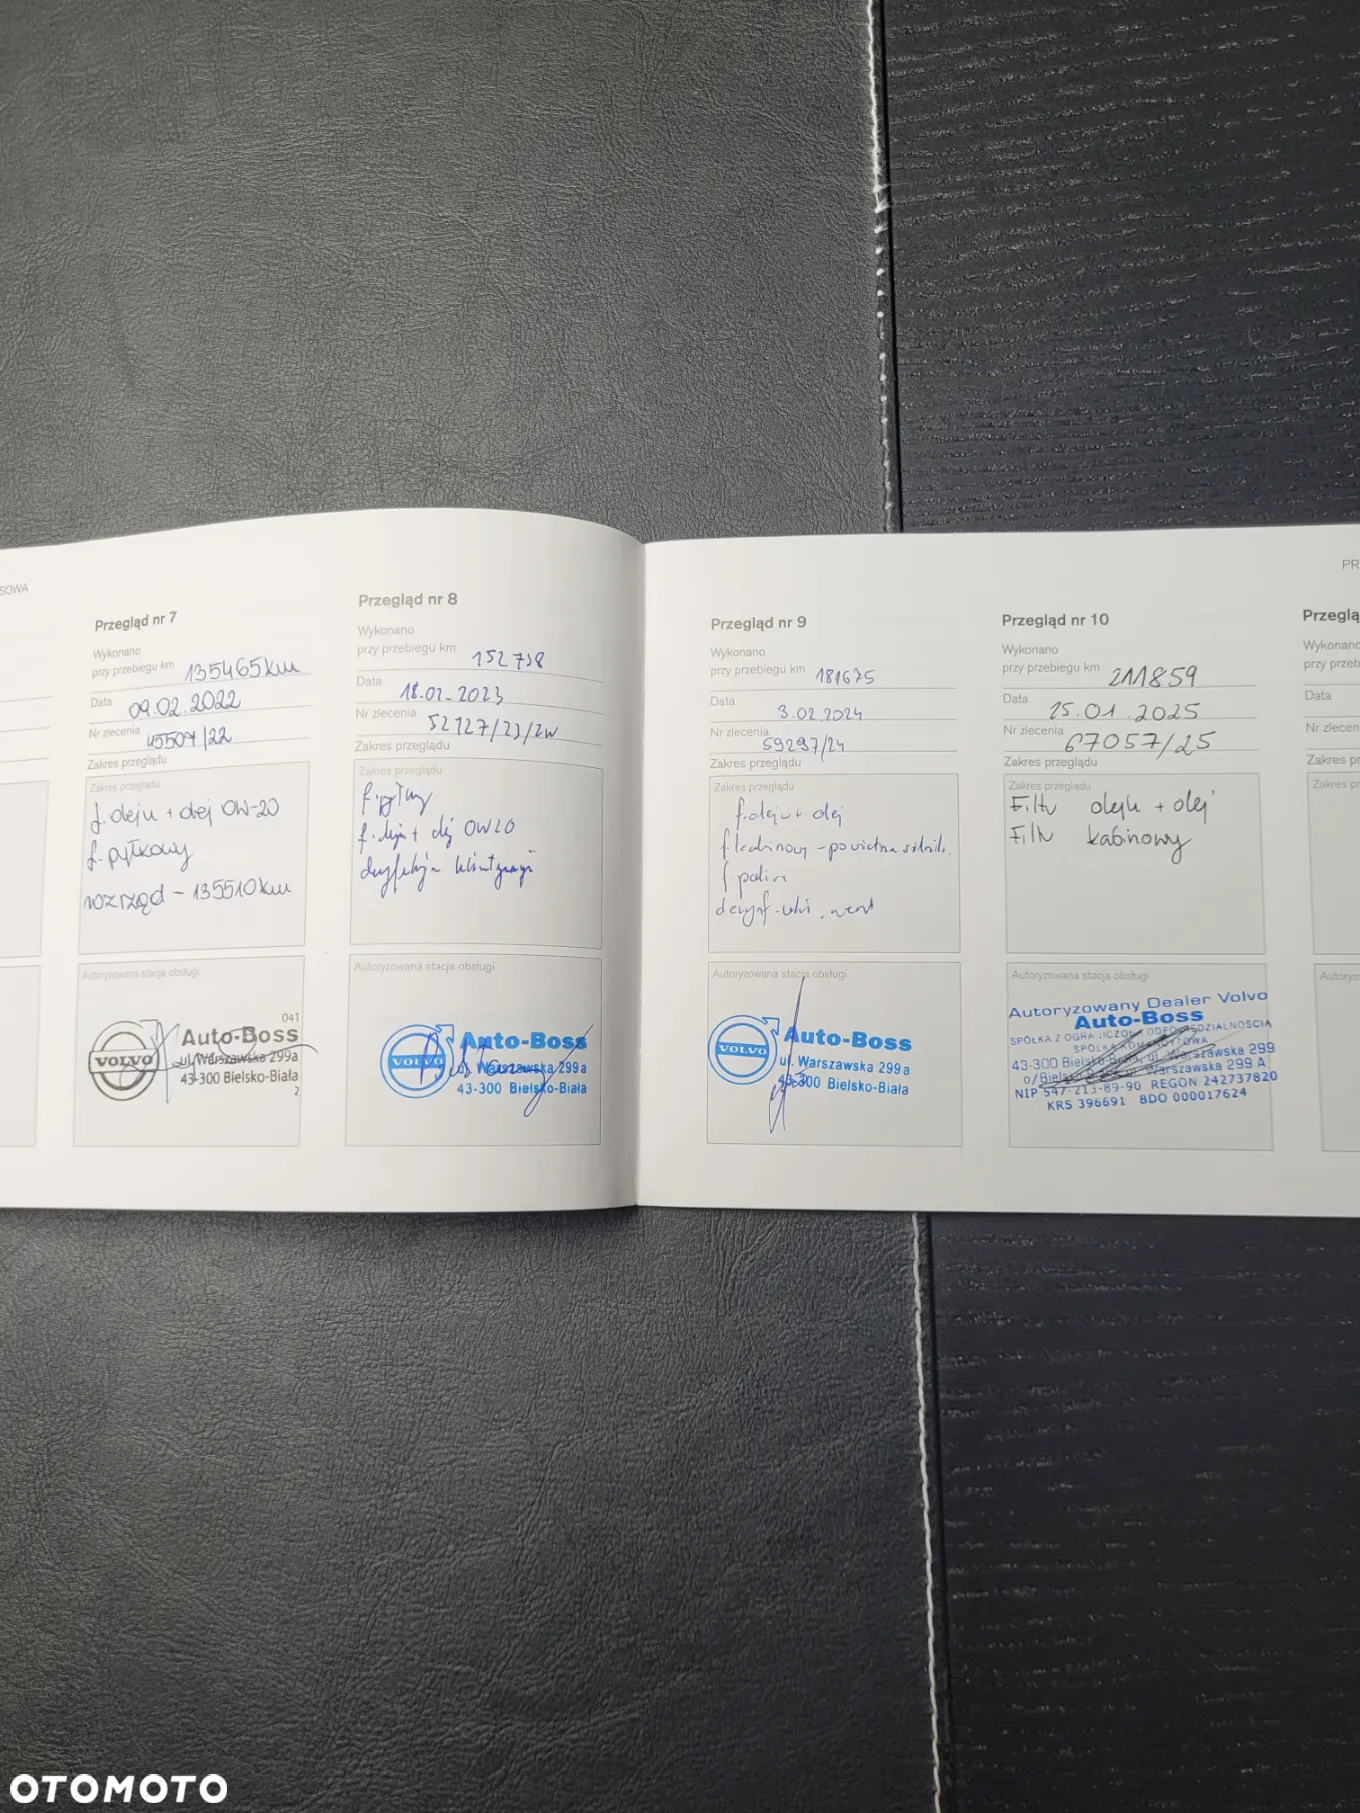 SOWA
Przegląd nr 7
Wykonano
przy przebiegu km 135465km
Data 09.02.2022
Nr zlecenia 45507/22
Zakres przeglądu
Zakres przeglądu
f. oleju + olej 0W-20
f. pyłkowy
rozrząd - 135510km
Autoryzowana stacja obsługi
041
VOLVO
Auto-Boss
ul. Warszawska 299a
43-300 Bielsko-Biała
2
Przegląd nr 8
Wykonano
przy przebiegu km 152738
Data 18.02.2023
Nr zlecenia 52727/23/2W
Zakres przeglądu
Zakres przeglądu
f. pyłkowy
f. oleju + olej 0W20
Autoryzowana stacja obsługi
VOLVO
Auto-Boss
ul. Warszawska 299a
43-300 Bielsko-Biała
Przegląd nr 9
Wykonano
przy przebiegu km 181675
Data 3.02.2024
Nr zlecenia 59297/24
Zakres przeglądu
Zakres przeglądu
f. oleju + olej
f. kabinowy - powietrza silnik.
f. paliw
Autoryzowana stacja obsługi
VOLVO
Auto-Boss
ul. Warszawska 299a
43-300 Bielsko-Biała
PR
Przegląd nr 10
Wykonano
przy przebiegu km 211859
Data 25.01.2025
Nr zlecenia 67057/25
Zakres przeglądu
Zakres przeglądu
Filtr oleju + olej
Filtr kabinowy
Autoryzowana stacja obsługi
Autoryzowany Dealer Volvo
Auto-Boss
SPÓŁKA Z OGRANICZONĄ ODPOWIEDZIALNOŚCIĄ
SPÓŁKA KOMANDYTOWA
43-300 Bielsko-Biała, ul. Warszawska 299
o/Bielsko-Biała, ul. Warszawska 299 A
NIP 547-213-89-90 REGON 242737820
KRS 396691 BDO 000017624
Przeglą
Wykonano
przy przeb
Data
Nr zlecen
Zakres pr
Zakres prz
Autoryzo
OTOMOTO